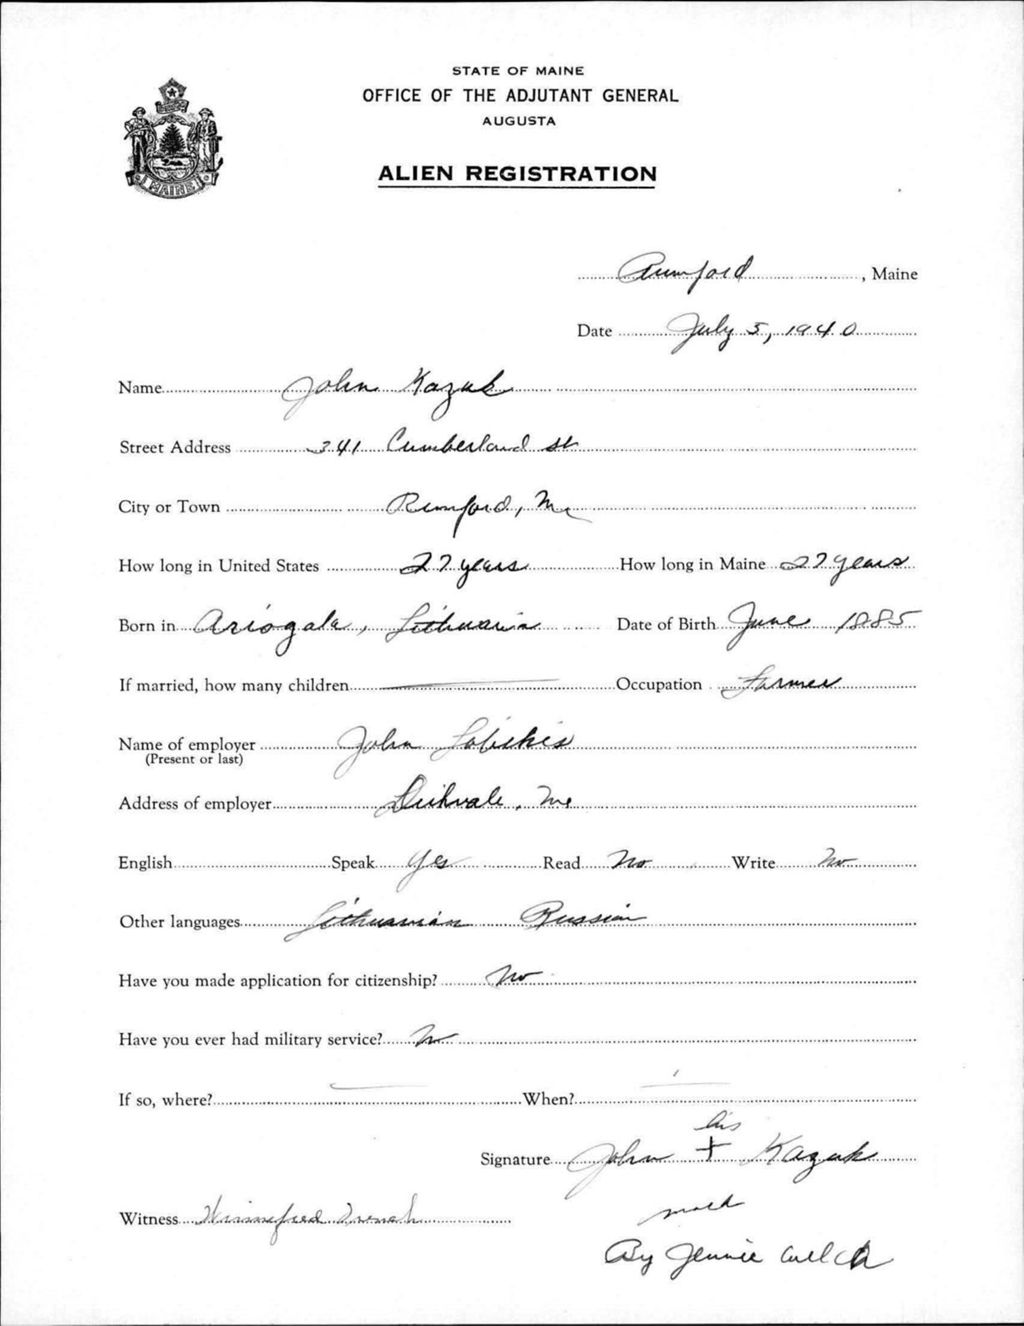 STATE OF MAINE
OFFICE OF THE ADJUTANT GENERAL
AUGUSTA
ALIEN REGISTRATION
MAINE
Rumford, Maine
Date July 5, 1940
Name John Kazuk
Street Address 341 Cumberland St
City or Town Rumford, Me
How long in United States 27 years How long in Maine 27 years
Born in Ariogala, Lithuania Date of Birth June 1885
If married, how many children Occupation Farmer
Name of employer John
(Present or last)
Address of employer Me
English Speak Yes Read No Write No
Other languages Lithuanian Russian
Have you made application for citizenship? No
Have you ever had military service? No
If so, where? When?
his
Signature John + Kazuk
mark
Witness Winnefred French
By Jennie Welch